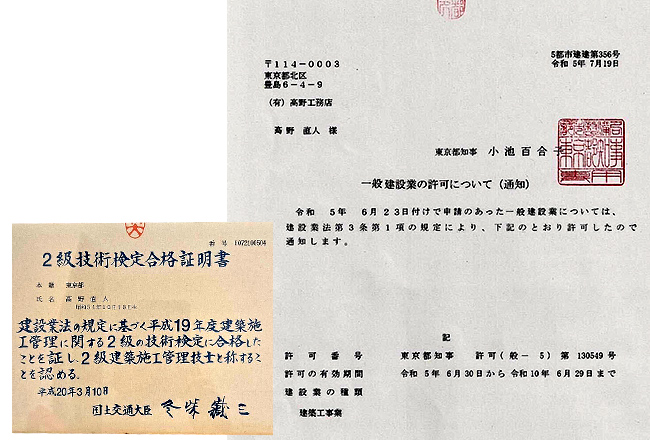 5都市建建第356号
令和 5年 7月19日
〒114-0003
東京都北区
豊島6-4-9
(有) 高野工務店
高野 直人 様
東京都知事 小池百合子
一般建設業の許可について (通知)
令和 5年 6月23日付けで申請のあった一般建設業については、
建設業法第3条第1項の規定により、下記のとおり許可したので
通知します。
記
許可番号 東京都知事 許可 (般-5) 第130549号
許可の有効期間 令和 5年 6月30日から令和10年 6月29日まで
建設業の種類
建築工事業
番号 1072100504
2級技術検定合格証明書
本籍 東京都
氏名 高野直人
建設業法の規定に基づく平成19年度建築施
工管理に関する2級の技術検定に合格した
ことを証し、2級建築施工管理技士と称するこ
とを認める。
平成20年3月10日
国土交通大臣 冬柴鐵三